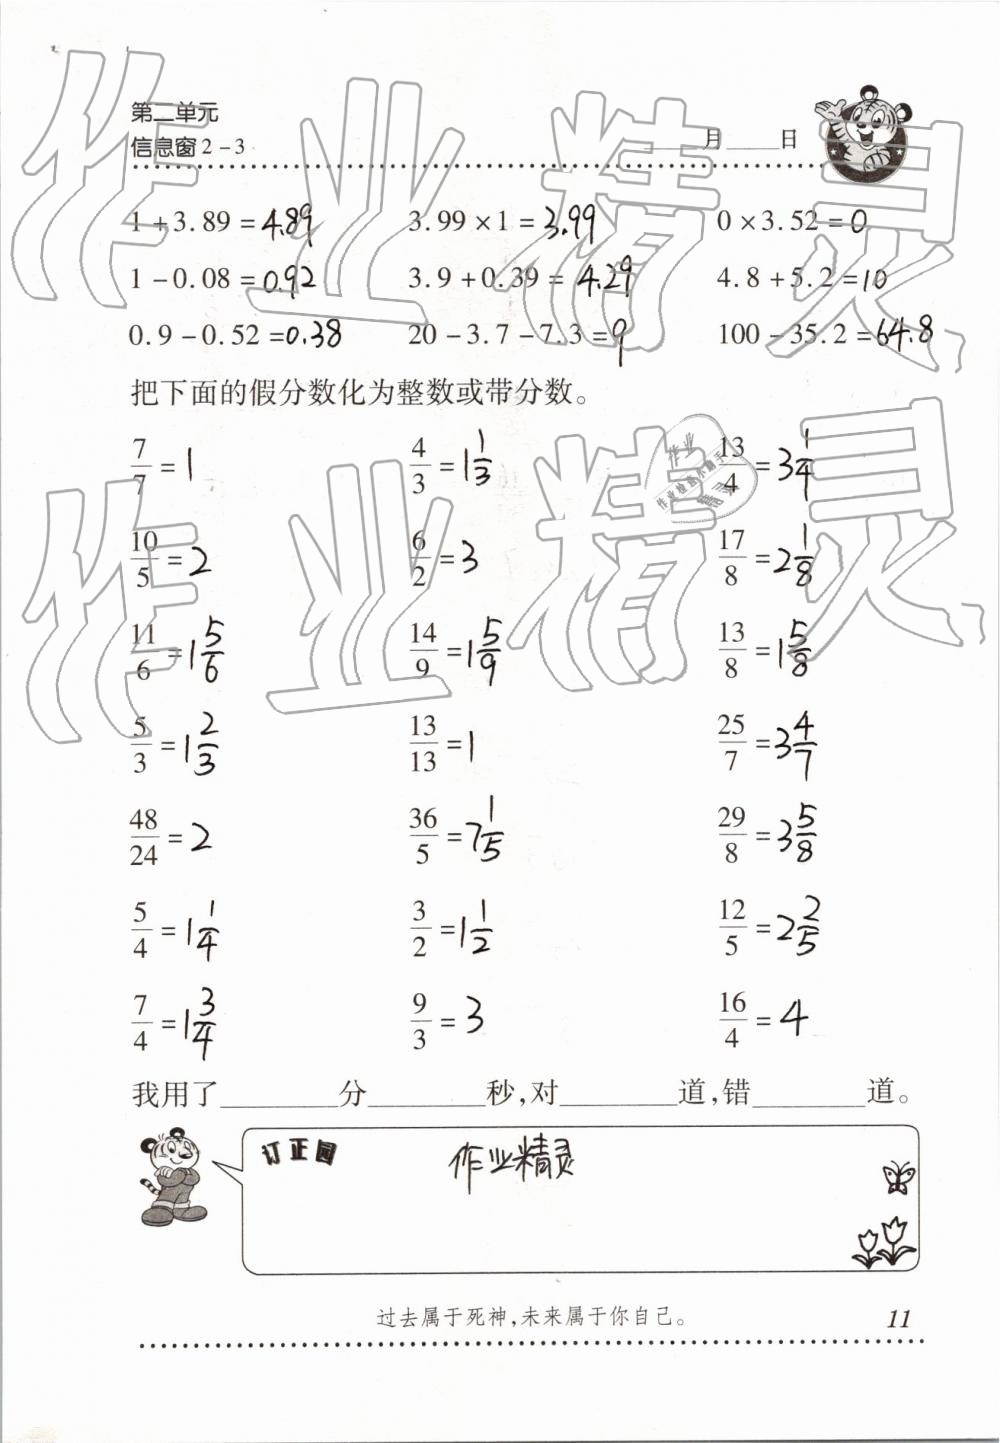 第二单元
信息窗2-3
月 日
1+3.89=4.89 3.99×1=3.99 0×3.52=0
1-0.08=0.92 3.9+0.39=4.29 4.8+5.2=10
0.9-0.52=0.38 20-3.7-7.3=9 100-35.2=64.8
把下面的假分数化为整数或带分数。
7/7=1 4/3=1 1/3 13/4=3 1/4
10/5=2 6/2=3 17/8=2 1/8
11/6=1 5/6 14/9=1 5/9 13/8=1 5/8
5/3=1 2/3 13/13=1 25/7=3 4/7
48/24=2 36/5=7 1/5 29/8=3 5/8
5/4=1 1/4 3/2=1 1/2 12/5=2 2/5
7/4=1 3/4 9/3=3 16/4=4
我用了____分____秒,对____道,错____道。
订正园
作业精灵
过去属于死神,未来属于你自己。
11
作业精灵
作业精灵
作业
精灵